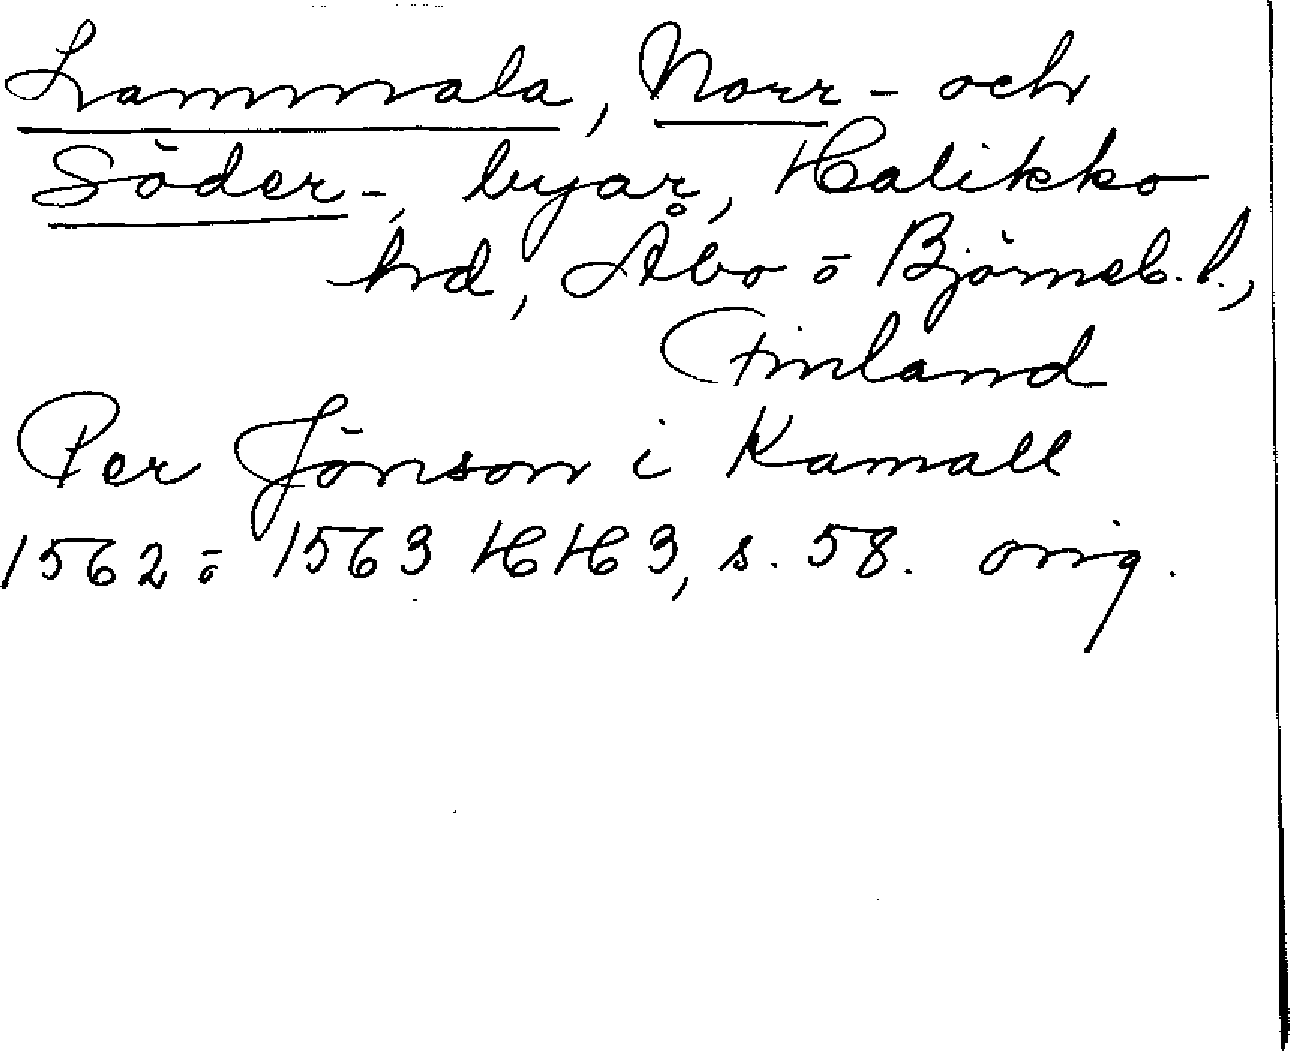 Lammala, Norr- och
Söder-, byar, Halikko
hd, Åbo o Björneb. l.,
Finland
Per Jönson i Kamall
1562 o 1563 HH 3, s. 58. orig.